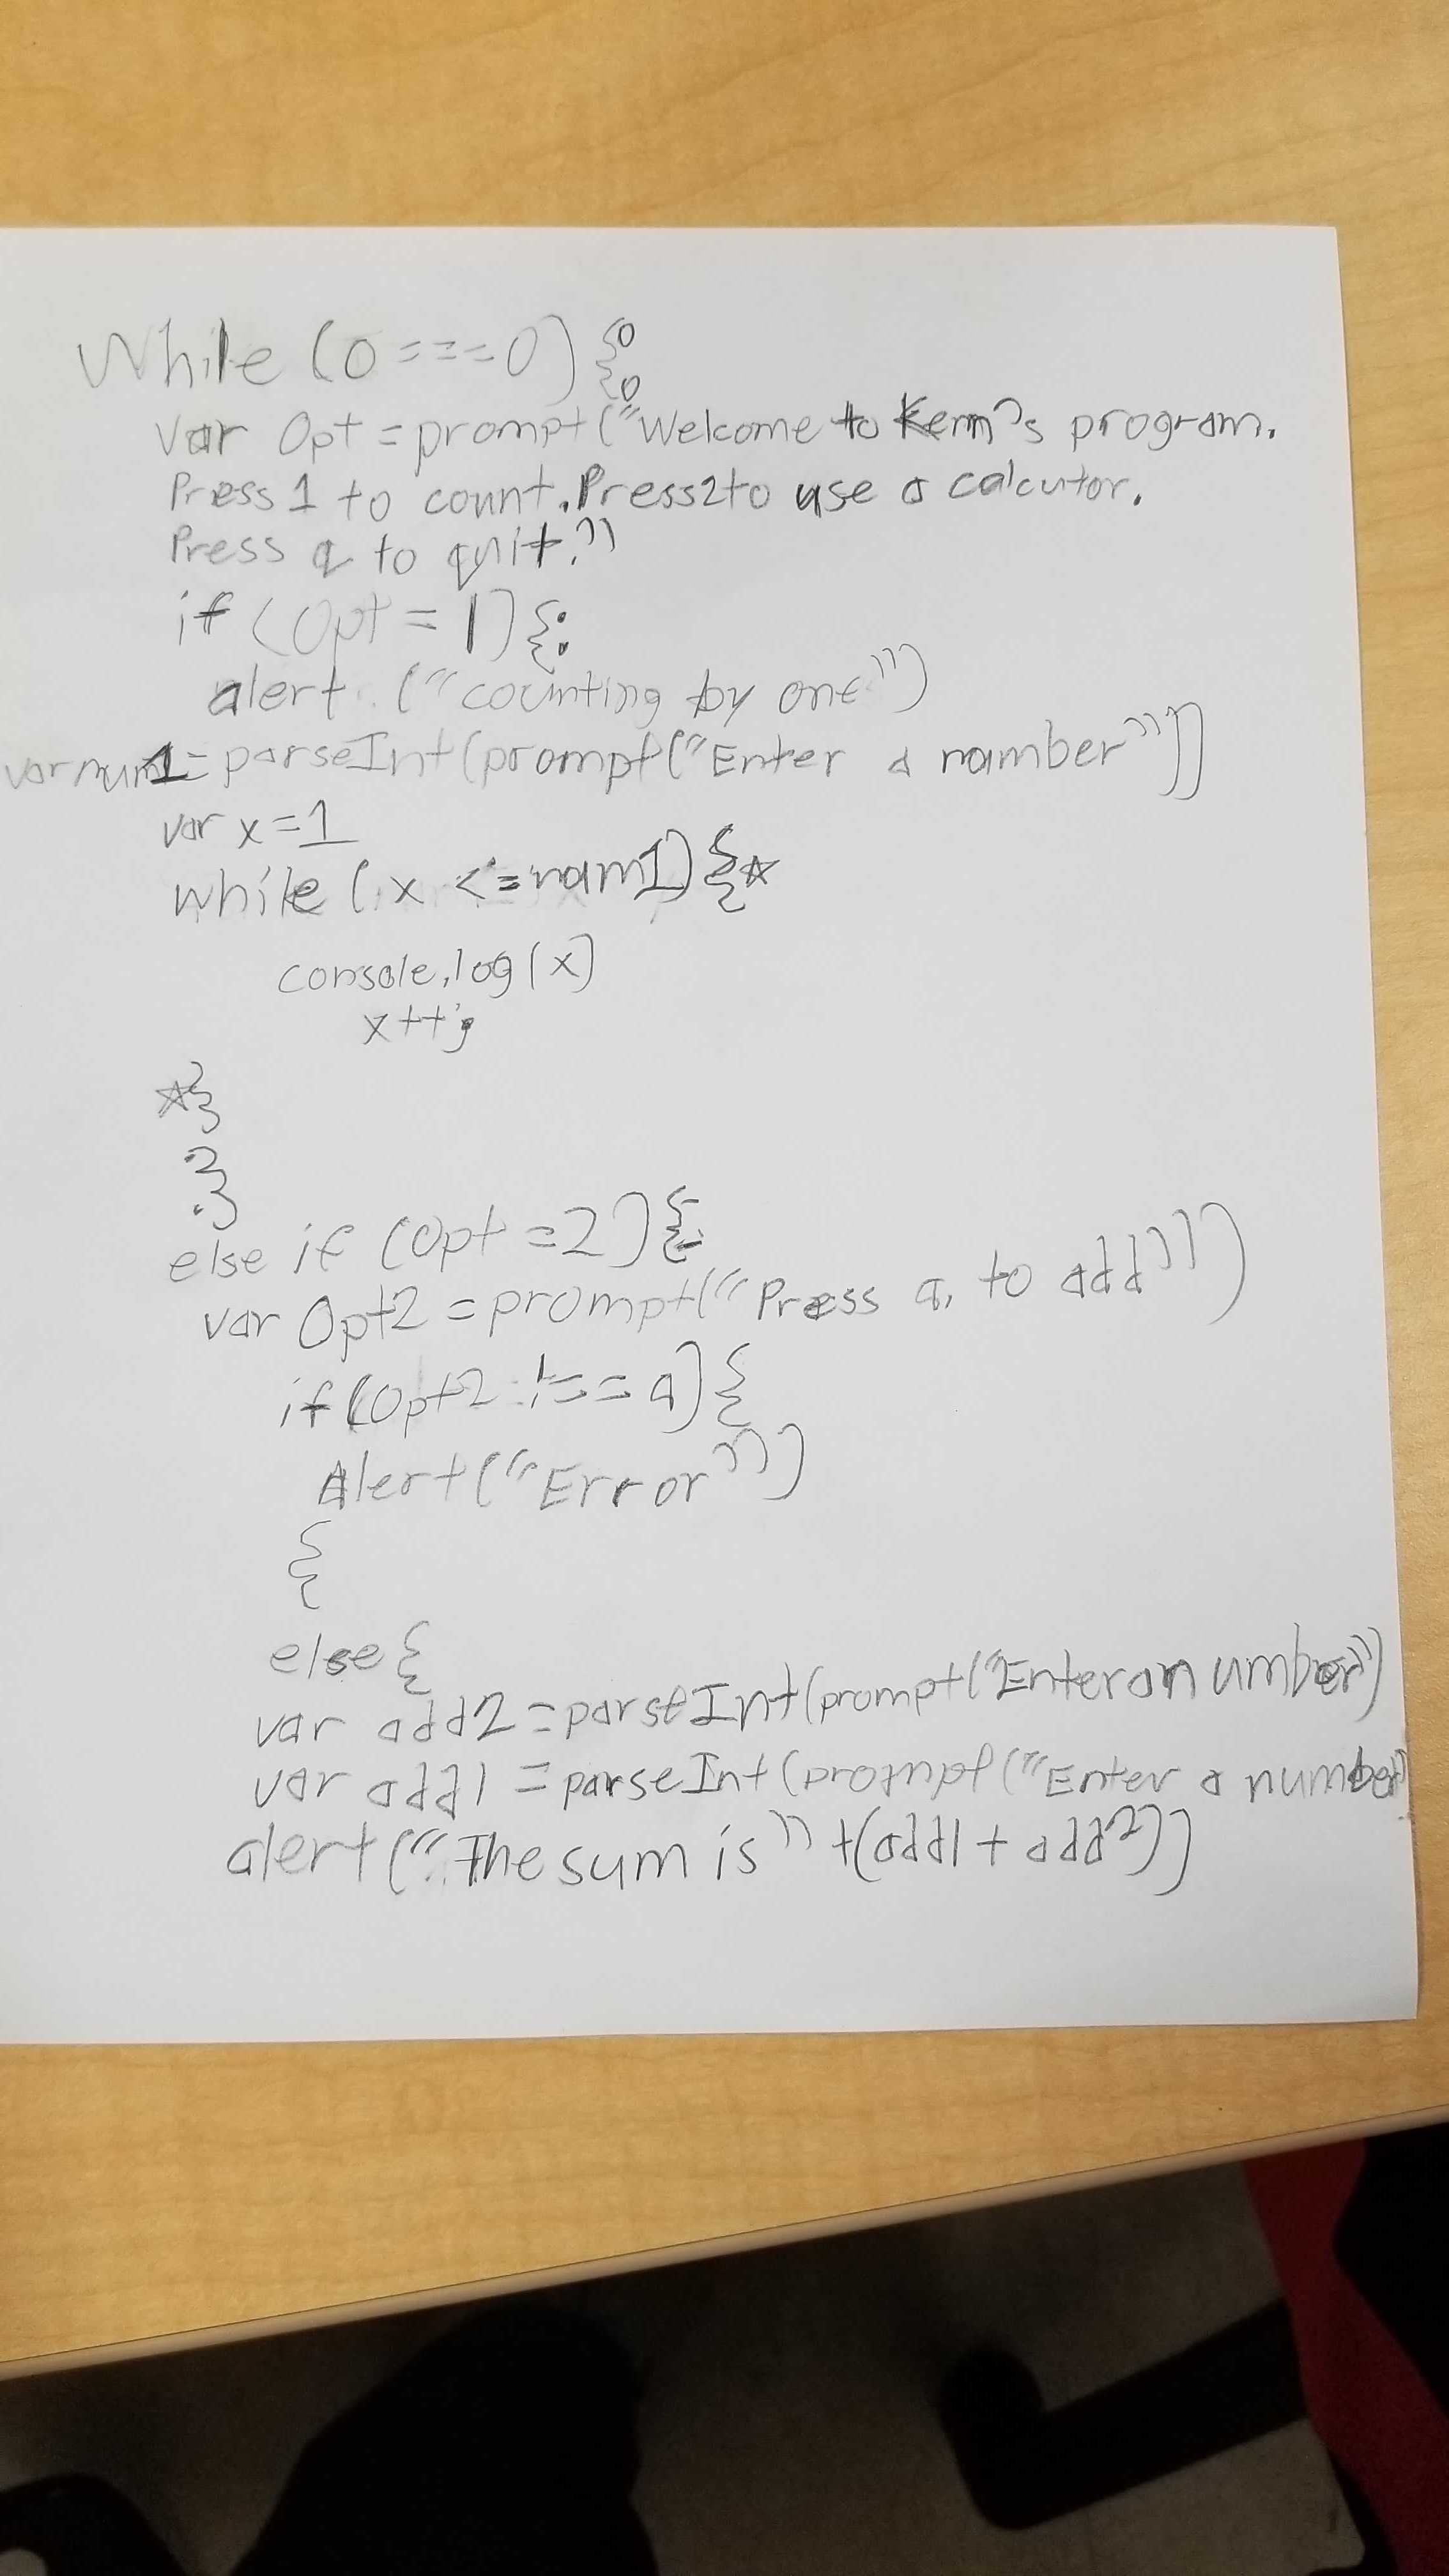 While (0 === 0) {
var Opt = prompt("Welcome to Kenn's program.
Press 1 to count. Press 2 to use a calcutor.
Press q to quit.")
if (Opt = 1) {
alert ("counting by one")
var num1 = parseInt(prompt("Enter a number"))
var x = 1
while (x <= num1) {☆
console.log(x)
x++;
☆}
}
else if (Opt = 2) {
var Opt2 = prompt("Press a, to add")
if (Opt2 !== a) {
Alert("Error")
{
else {
var add2 = parseInt(prompt("Enter a number")
var add1 = parseInt(prompt("Enter a number
alert("The sum is" + (add1 + add2))